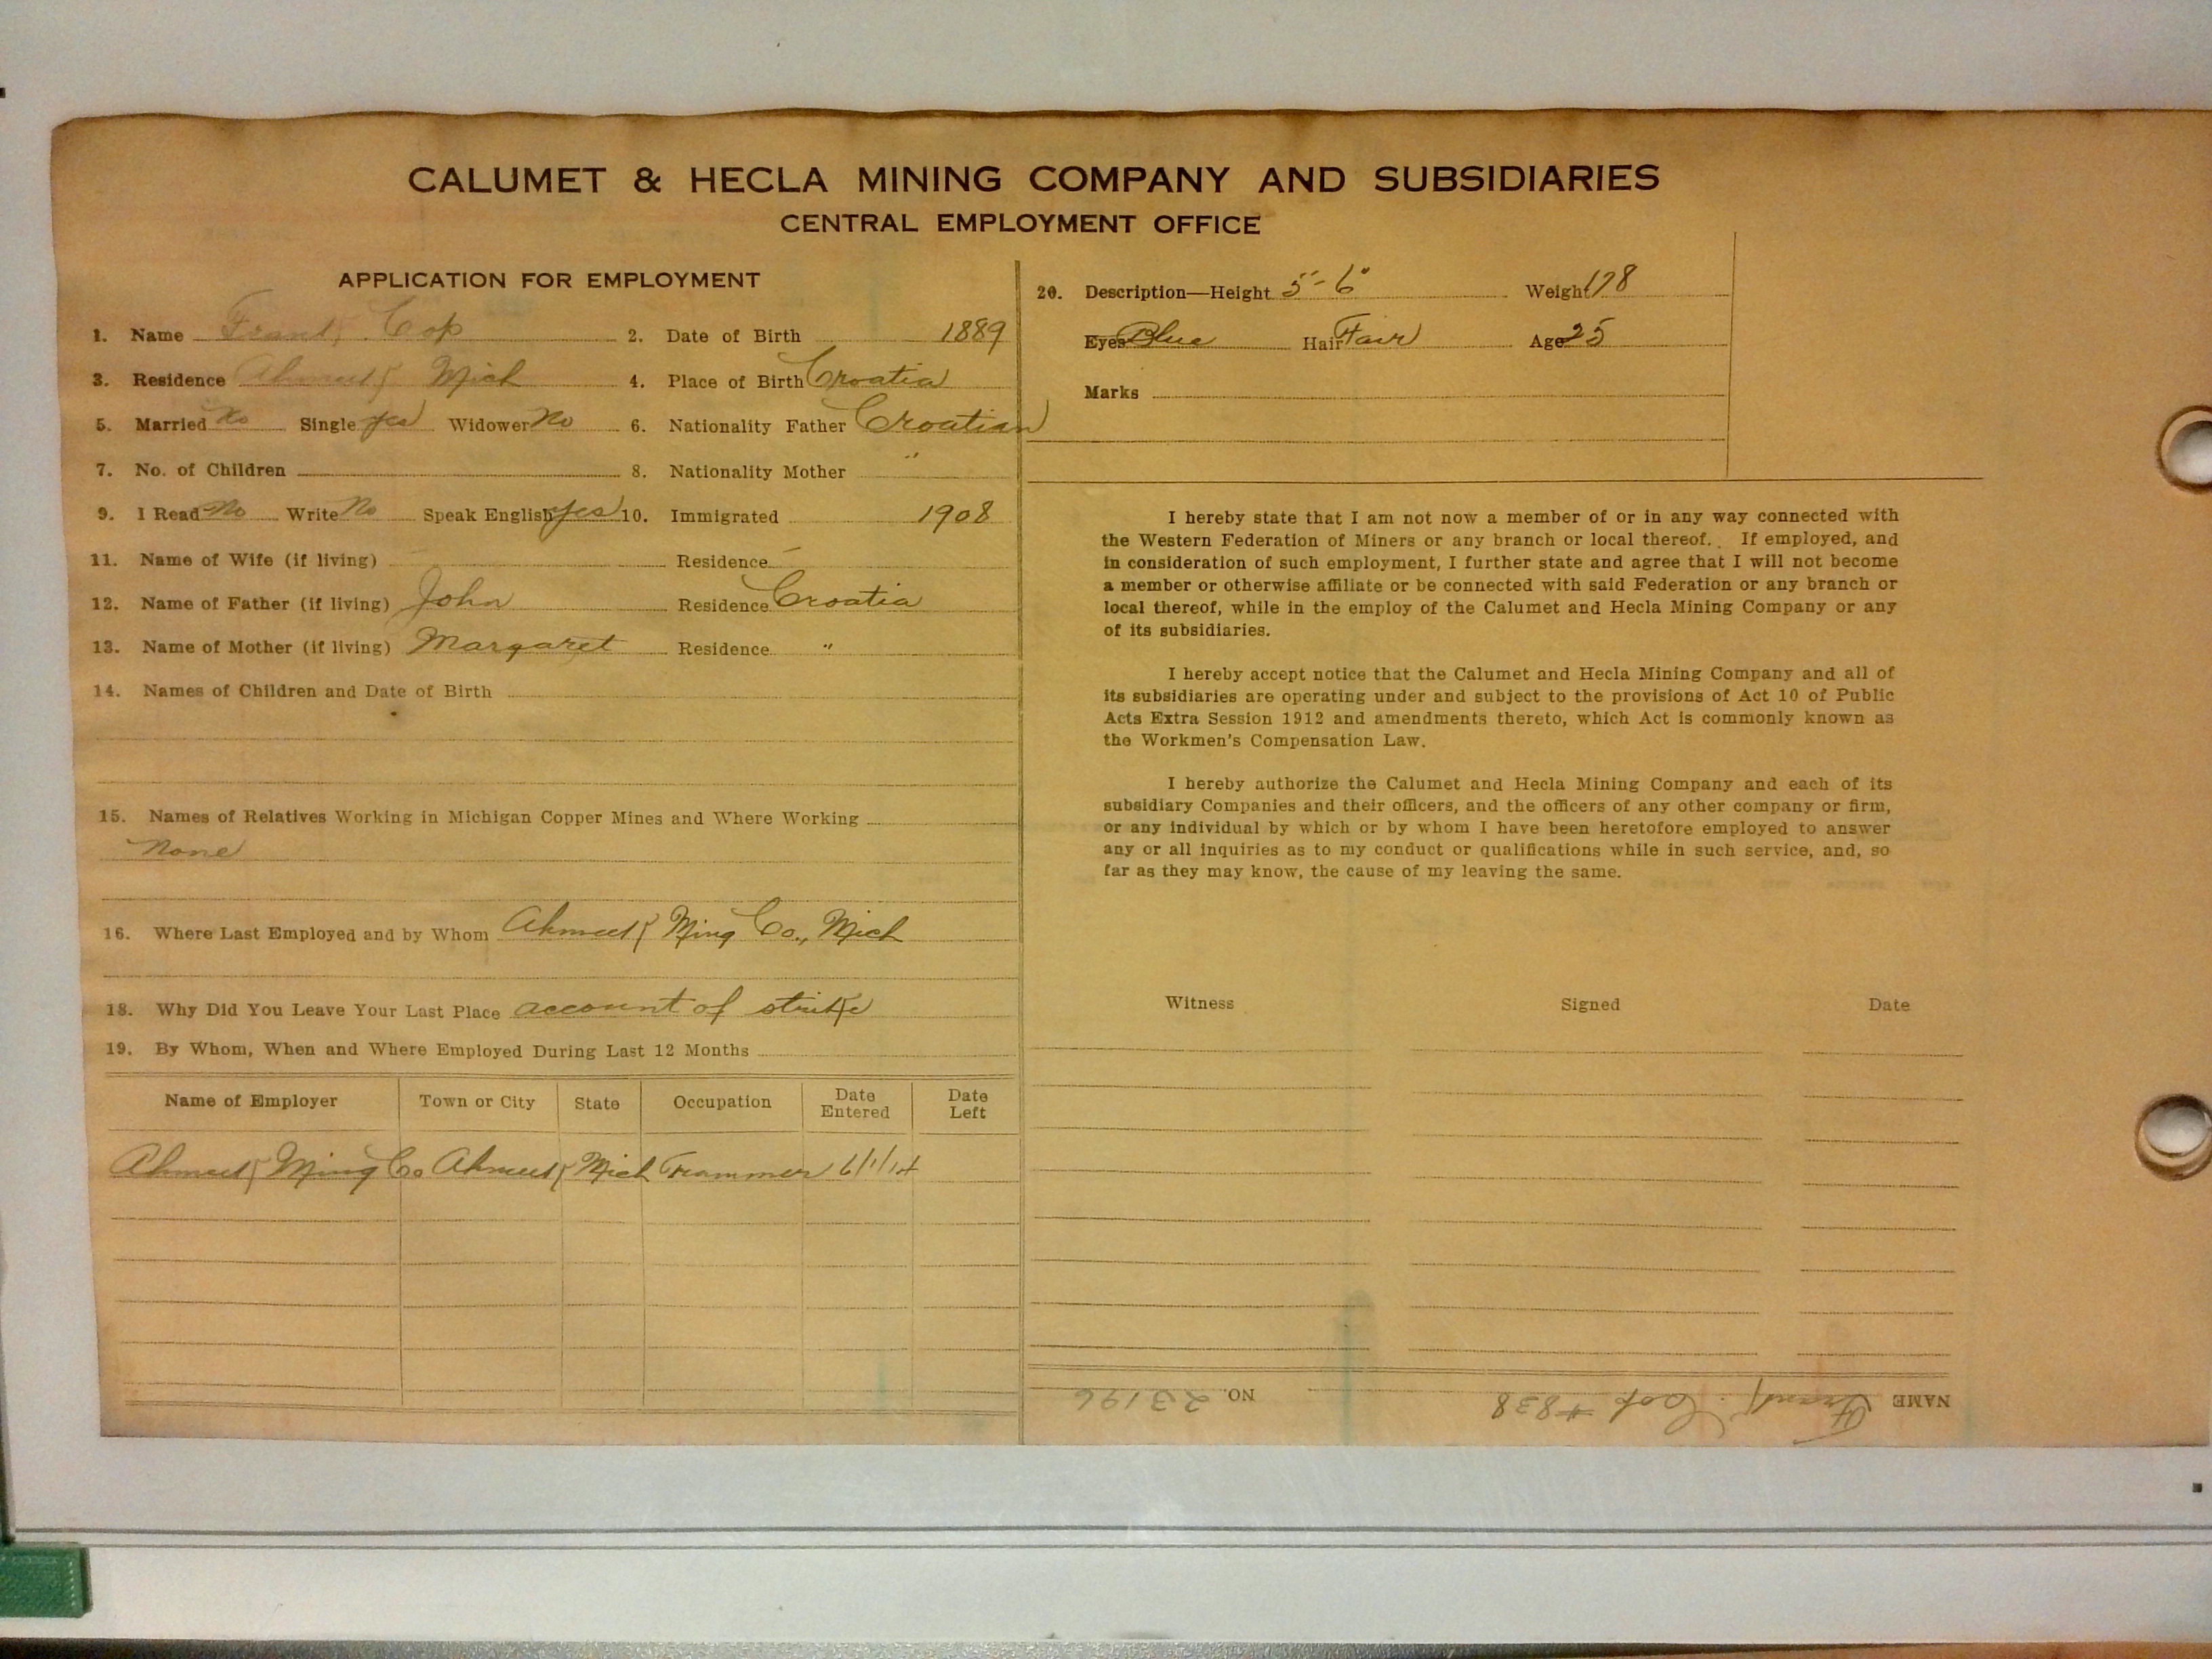 CALUMET & HECLA MINING COMPANY AND SUBSIDIARIES
CENTRAL EMPLOYMENT OFFICE
APPLICATION FOR EMPLOYMENT
1. Name Frank Cop 2. Date of Birth 1889
3. Residence Ahmeek Mich 4. Place of Birth Croatia
5. Married No Single yes Widower No 6. Nationality Father Croatian
7. No. of Children 8. Nationality Mother "
9. I Read No Write No Speak English yes 10. Immigrated 1908
11. Name of Wife (if living) — Residence —
12. Name of Father (if living) John Residence Croatia
13. Name of Mother (if living) Margaret Residence "
14. Names of Children and Date of Birth
15. Names of Relatives Working in Michigan Copper Mines and Where Working
None
16. Where Last Employed and by Whom Ahmeek Ming Co., Mich
18. Why Did You Leave Your Last Place account of strike
19. By Whom, When and Where Employed During Last 12 Months
Name of Employer Town or City State Occupation Date Entered Date Left
Ahmeek Ming Co Ahmeek Mich Trammer 6/1/14
20. Description—Height 5'-6" Weight 178
Eyes Blue Hair Fair Age 25
Marks
I hereby state that I am not now a member of or in any way connected with
the Western Federation of Miners or any branch or local thereof. If employed, and
in consideration of such employment, I further state and agree that I will not become
a member or otherwise affiliate or be connected with said Federation or any branch or
local thereof, while in the employ of the Calumet and Hecla Mining Company or any
of its subsidiaries.
I hereby accept notice that the Calumet and Hecla Mining Company and all of
its subsidiaries are operating under and subject to the provisions of Act 10 of Public
Acts Extra Session 1912 and amendments thereto, which Act is commonly known as
the Workmen's Compensation Law.
I hereby authorize the Calumet and Hecla Mining Company and each of its
subsidiary Companies and their officers, and the officers of any other company or firm,
or any individual by which or by whom I have been heretofore employed to answer
any or all inquiries as to my conduct or qualifications while in such service, and, so
far as they may know, the cause of my leaving the same.
Witness Signed Date
NAME Frank Cop #838 NO. 23196